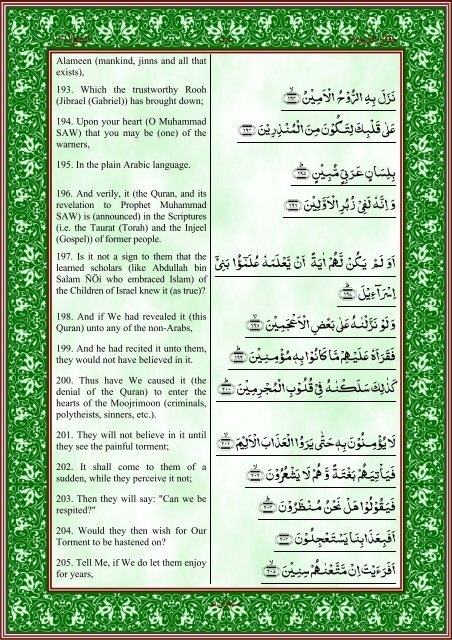 Alameen (mankind, jinns and all that
exists),
193. Which the trustworthy Rooh
(Jibrael (Gabriel)) has brought down;
نَزَلَ بِهِ الرُّوْحُ الْاَمِيْنُ ۙ﴿۱۹۳﴾
194. Upon your heart (O Muhammad
SAW) that you may be (one) of the
warners,
عَلٰى قَلْبِكَ لِتَكُوْنَ مِنَ الْمُنْذِرِيْنَ ۙ﴿۱۹۴﴾
195. In the plain Arabic language.
بِلِسَانٍ عَرَبِىٍّ مُّبِيْنٍ ؕ﴿۱۹۵﴾
196. And verily, it (the Quran, and its
revelation to Prophet Muhammad
SAW) is (announced) in the Scriptures
(i.e. the Taurat (Torah) and the Injeel
(Gospel)) of former people.
وَ اِنَّهٗ لَفِىْ زُبُرِ الْاَوَّلِيْنَ ﴿۱۹۶﴾
197. Is it not a sign to them that the
learned scholars (like Abdullah bin
Salam ÑÖi who embraced Islam) of
the Children of Israel knew it (as true)?
اَوَ لَمْ يَكُنْ لَّهُمْ اٰيَةً اَنْ يَّعْلَمَهٗ عُلَمٰٓؤُا بَنِىْۤ
اِسْرَآءِيْلَ ؕ﴿۱۹۷﴾
198. And if We had revealed it (this
Quran) unto any of the non-Arabs,
وَلَوْ نَزَّلْنٰهُ عَلٰى بَعْضِ الْاَعْجَمِيْنَ ۙ﴿۱۹۸﴾
199. And he had recited it unto them,
they would not have believed in it.
فَقَرَاَهٗ عَلَيْهِمْ مَّا كَانُوْا بِهٖ مُؤْمِنِيْنَ ؕ﴿۱۹۹﴾
200. Thus have We caused it (the
denial of the Quran) to enter the
hearts of the Moojrimoon (criminals,
polytheists, sinners, etc.).
كَذٰلِكَ سَلَكْنٰهُ فِىْ قُلُوْبِ الْمُجْرِمِيْنَ ؕ﴿۲۰۰﴾
201. They will not believe in it until
they see the painful torment;
لَا يُؤْمِنُوْنَ بِهٖ حَتّٰى يَرَوُا الْعَذَابَ الْاَلِيْمَ ۙ﴿۲۰۱﴾
202. It shall come to them of a
sudden, while they perceive it not;
فَيَاْتِيَهُمْ بَغْتَةً وَّ هُمْ لَا يَشْعُرُوْنَ ۙ﴿۲۰۲﴾
203. Then they will say: "Can we be
respited?"
فَيَقُوْلُوْا هَلْ نَحْنُ مُنْظَرُوْنَ ؕ﴿۲۰۳﴾
204. Would they then wish for Our
Torment to be hastened on?
اَفَبِعَذَابِنَا يَسْتَعْجِلُوْنَ ﴿۲۰۴﴾
205. Tell Me, if We do let them enjoy
for years,
اَفَرَءَيْتَ اِنْ مَّتَّعْنٰهُمْ سِنِيْنَ ۙ﴿۲۰۵﴾